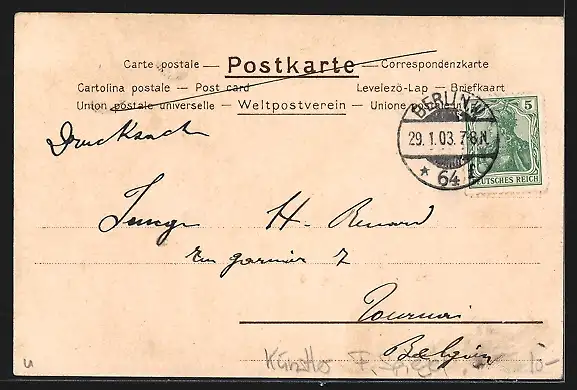 Carte postale — Postkarte — Correspondenzkarte
Cartolina postale — Post card Levelezö-Lap — Briefkaart
Union postale universelle — Weltpostverein — Unione postale
BERLIN W
29.1.03.7-8.N.
* 64
5
DEUTSCHES REICH
Drucksach
H. Renard
7
Tournai
Belgien
Künstler F.